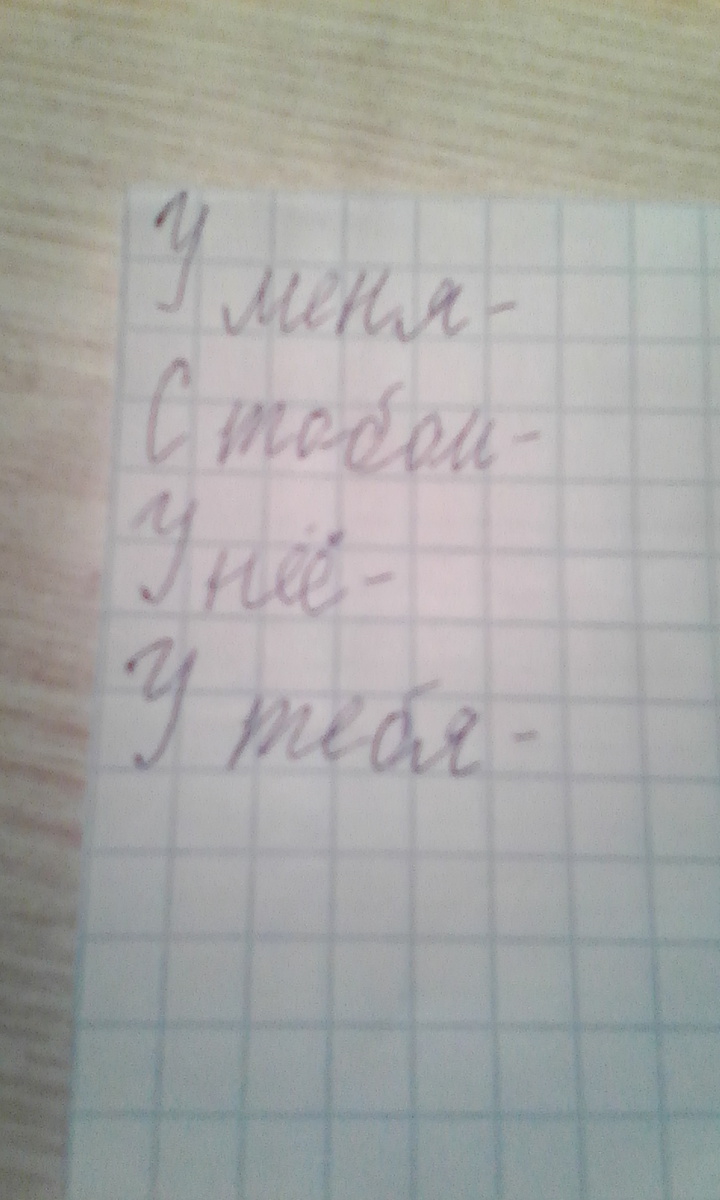 У меня-
С тобои-
У неё-
У тебя-